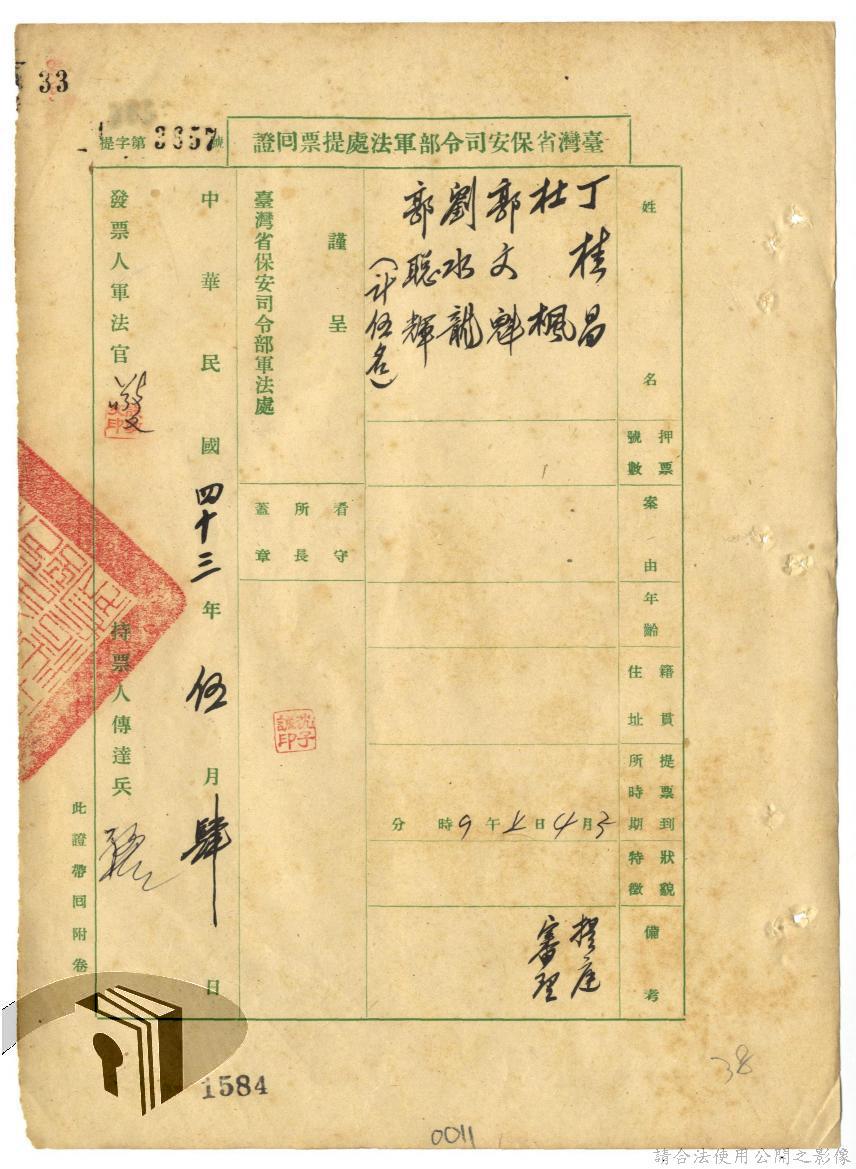 33
提字第3657號
臺灣省保安司令部軍法處提票回證
姓名
丁桂昌
杜楓
郭文魁
劉水龍
郭聰輝
(計伍名)
押票號數
案由
年齡
籍貫住址
提票到所時期
5月4日上午9時 分
狀貌特徵
備考
提庭
審理
謹呈
臺灣省保安司令部軍法處
看守所長蓋章
中華民國四十三年伍月肆日
發票人軍法官
持票人傳達兵
此證帶回附卷
1584
0011
38
請合法使用公開之影像